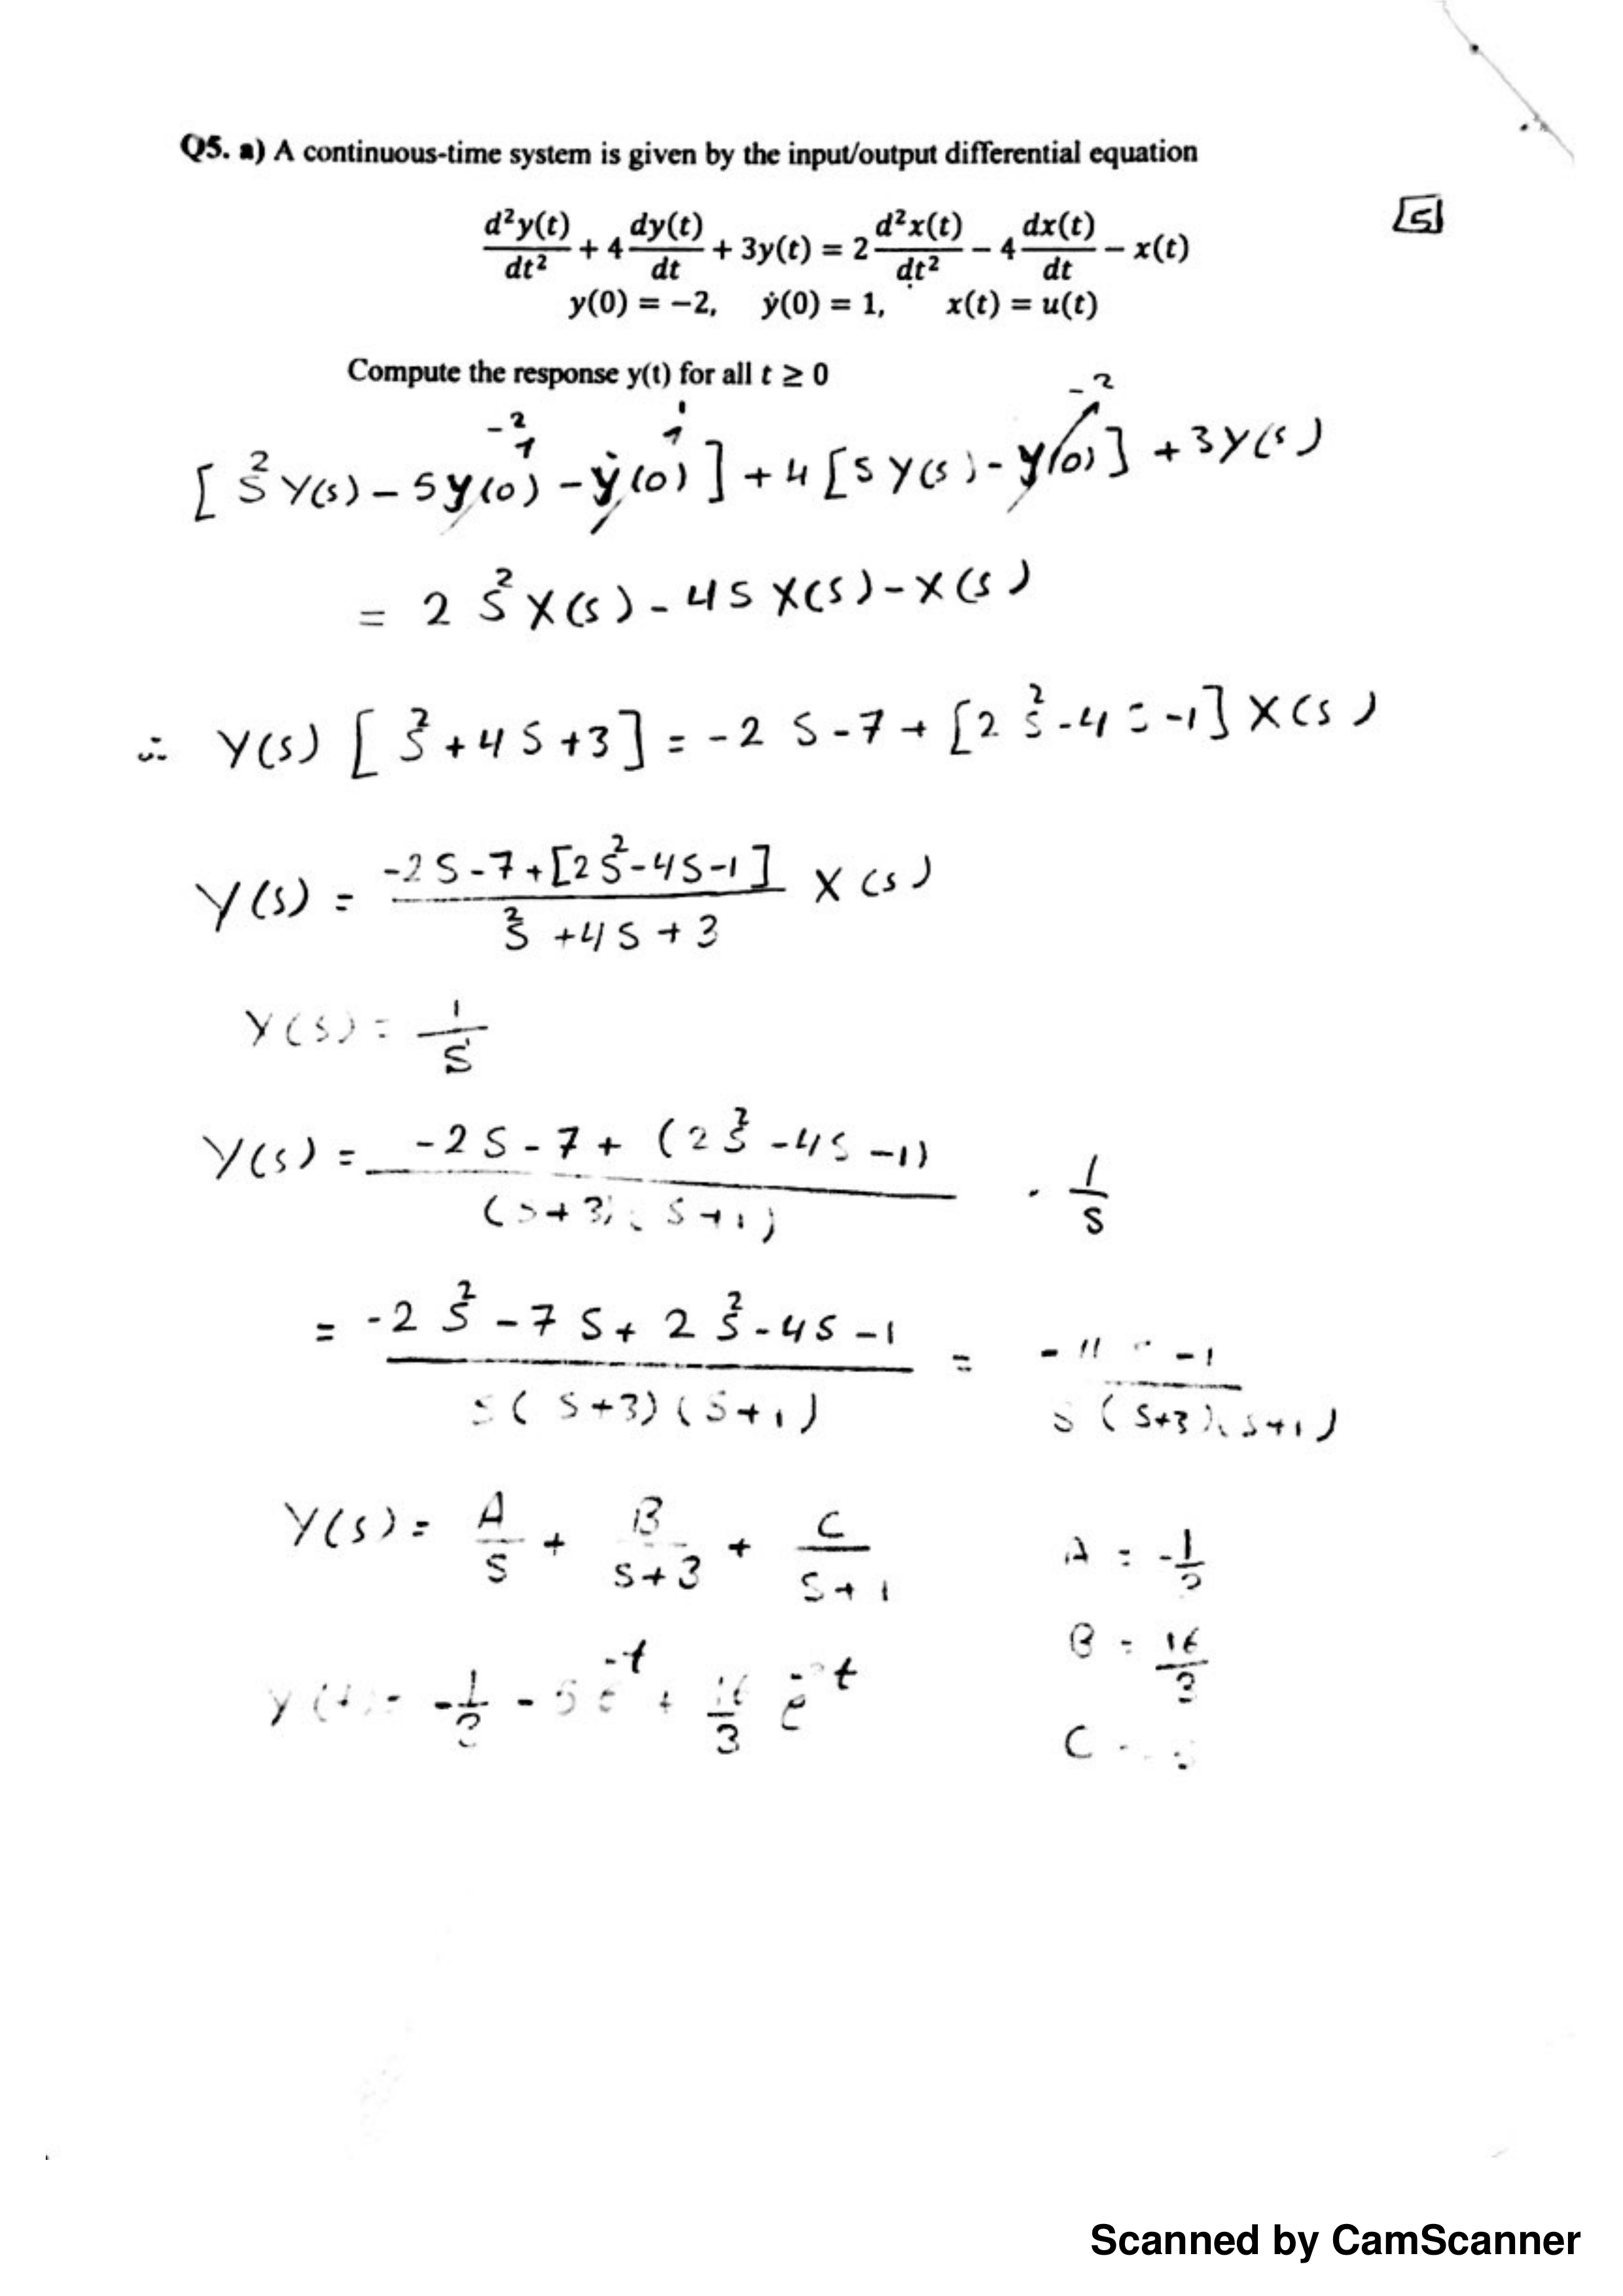 Q5. a) A continuous-time system is given by the input/output differential equation
5
d²y(t)/dt² + 4 dy(t)/dt + 3y(t) = 2 d²x(t)/dt² − 4 dx(t)/dt − x(t)
y(0) = −2, ẏ(0) = 1, x(t) = u(t)
Compute the response y(t) for all t ≥ 0
-2 1 -2
[ s² Y(s) - s y(0) - ẏ(0) ] + 4 [ s Y(s) - y(0) ] + 3 Y(s)
= 2 s² X(s) - 4 s X(s) - X(s)
∴ Y(s) [ s² + 4 s + 3 ] = -2 s - 7 + [ 2 s² - 4 s - 1 ] X(s)
Y(s) = -2 s - 7 + [ 2 s² - 4 s - 1 ] / s² + 4 s + 3 X(s)
Y(s) = 1/s
Y(s) = -2 s - 7 + ( 2 s² - 4 s - 1 ) / (s+3)(s+1) . 1/s
= -2 s² - 7 s + 2 s² - 4 s - 1 / s (s+3)(s+1) = -11 -1 / s (s+3)(s+1)
Y(s) = A/s + B/s+3 + C/s+1
A = -1/
B = 16/3
y(t) = -1/ - 5 e^-t + 16/3 e^- t
C
Scanned by CamScanner